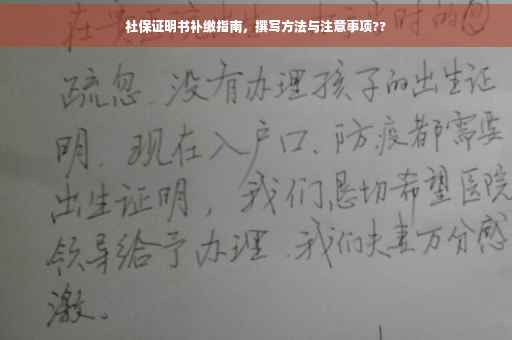 社保证明书补缴指南，撰写方法与注意事项??
疏忽、没有办理孩子的出生证
明、现在入户口、防疫都需要
出生证明，我们恳切希望医院
领导给予办理、我们夫妻万分感
激。